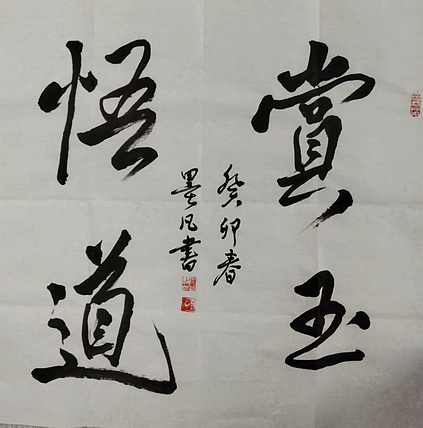 賞玉
悟道
癸卯春
墨凡書